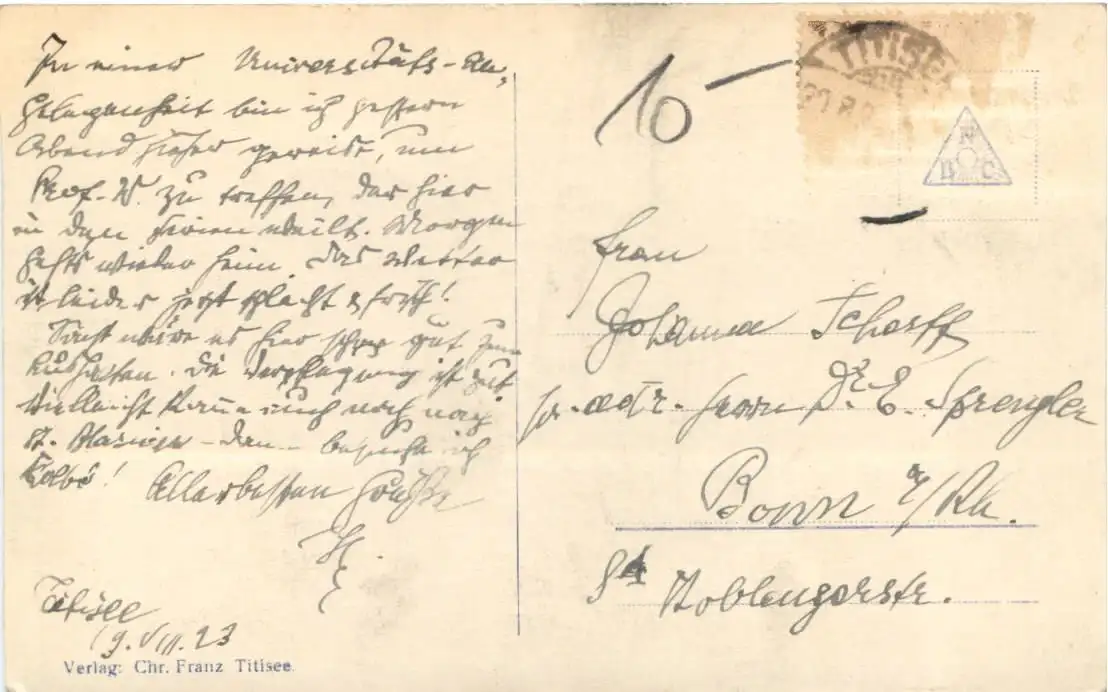 In einer Universitäts-An-
gelegenheit bin ich gestern
Abend hieher gereist, um
Prof. W. zu treffen, der hier
in den Ferien weilt. Morgen
gehts wieder heim. Das Wetter
ist leider jetzt schlecht & frisch!
Sonst wäre es hier sehr gut zum
Aushalten. Die Verpflegung ist gut.
Vielleicht kann auch noch nach
St. Blasien - dann besuche ich
Kolbs!
Allerbesten Grüße
Titisee
19. VIII. 23
Verlag: Chr. Franz Titisee.
10-
TITISEE
N
B C
Frau
Johanna Scharff
pr. adr. Herrn Dr. E. Sprengler
Bonn a/Rh.
Koblenzerstr.